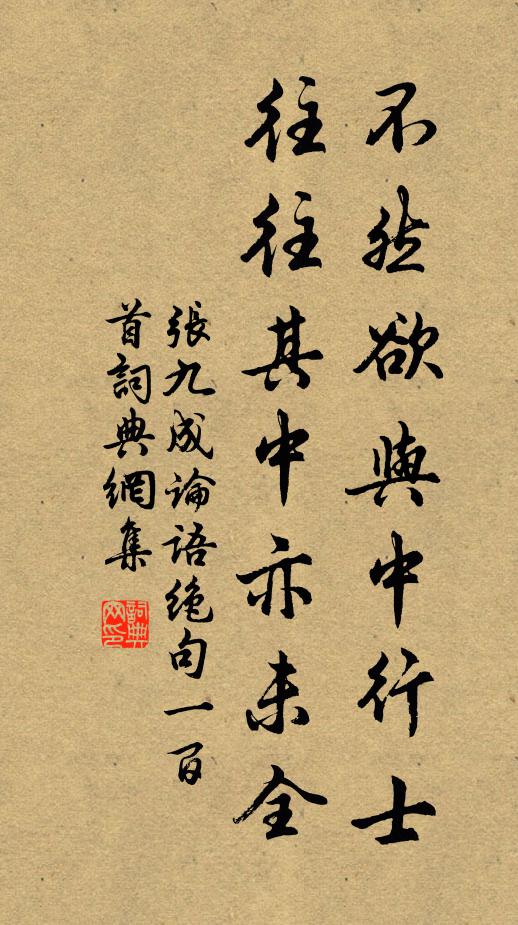 不然欲與中行士
往往其中亦未全
張九成論語絕句一百
首詞典網集
詞典网印